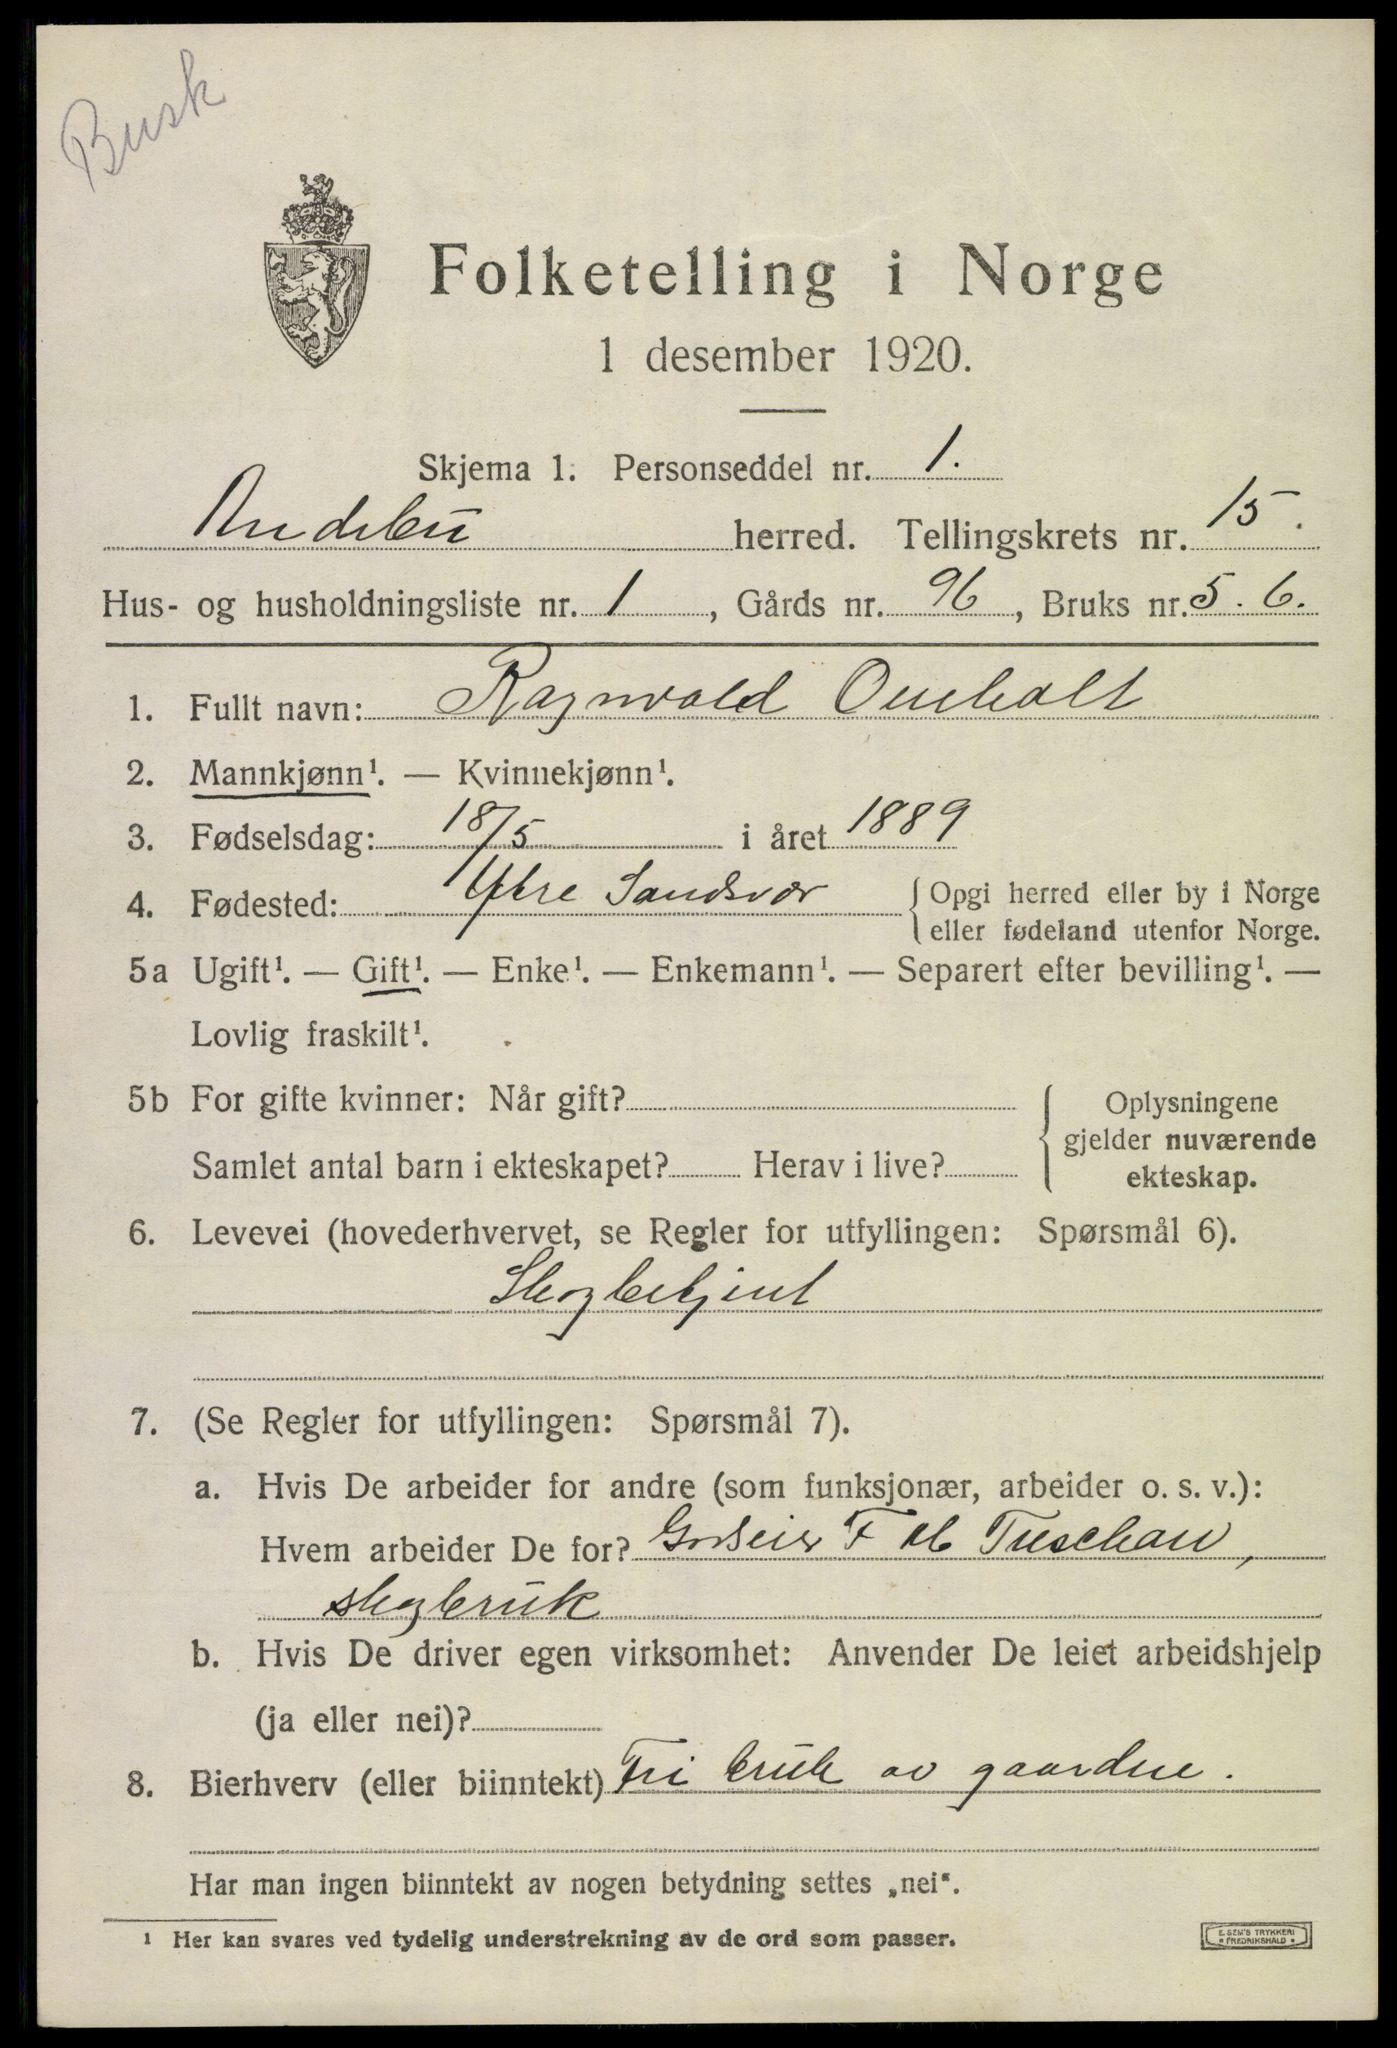 Busk
Folketelling i Norge
1 desember 1920.
Skjema 1. Personseddel nr. 1.
Andebu herred. Tellingskrets nr. 15.
Hus- og husholdningsliste nr. 1, Gårds nr. 96, Bruks nr. 5. 6.
1. Fullt navn: Ragnvald Omholt
2. Mannkjønn¹. — Kvinnekjønn¹.
3. Fødselsdag: 18/5 i året 1889
4. Fødested: Ytre Sandsvær { Opgi herred eller by i Norge
eller fødeland utenfor Norge.
5a Ugift¹. — Gift¹. — Enke¹. — Enkemann¹. — Separert efter bevilling¹. —
Lovlig fraskilt¹.
5b For gifte kvinner: Når gift?
Samlet antal barn i ekteskapet? Herav i live?
{ Oplysningene
gjelder nuværende
ekteskap.
6. Levevei (hovederhvervet, se Regler for utfyllingen: Spørsmål 6).
Skogbetjent
7. (Se Regler for utfyllingen: Spørsmål 7).
a. Hvis De arbeider for andre (som funksjonær, arbeider o. s. v.):
Hvem arbeider De for? Godseier F M Treschow,
skogbruk
b. Hvis De driver egen virksomhet: Anvender De leiet arbeidshjelp
(ja eller nei)?
8. Bierhverv (eller biinntekt) Fri bruk av gaardene.
Har man ingen biinntekt av nogen betydning settes „nei“.
¹ Her kan svares ved tydelig understrekning av de ord som passer.
E. SEM'S TRYKKERI
FREDRIKSHALD